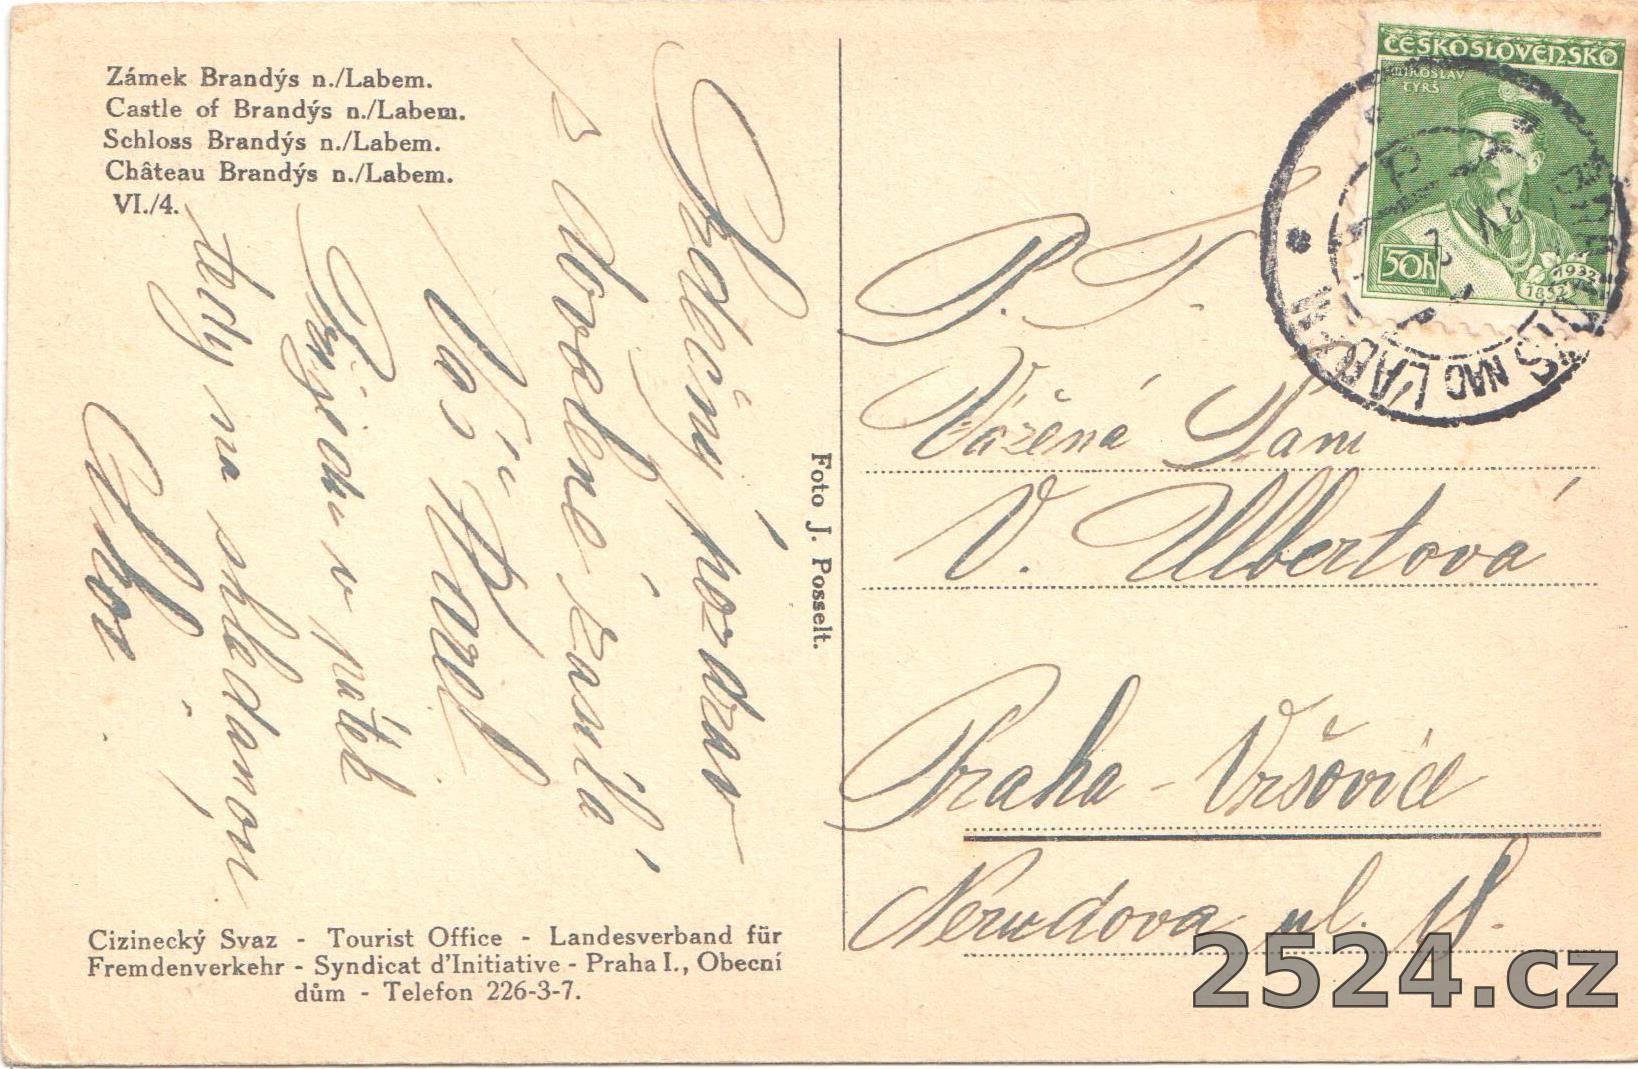 Zámek Brandýs n./Labem.
Castle of Brandýs n./Labem.
Schloss Brandýs n./Labem.
Château Brandýs n./Labem.
VI./4.
Srdečný pozdrav
z dovolené zasílá
Váš Karel
Přijedu v pátek
tedy na shledanou
Foto J. Posselt.
Cizinecký Svaz - Tourist Office - Landesverband für
Fremdenverkehr - Syndicat d'Initiative - Praha I., Obecní
dům - Telefon 226-3-7.
ČESKOSLOVENSKO
MIROSLAV
TYRŠ
50h
1932
1832
NAD LABEM
P. T.
Vážená Paní
V. Ulbertová
Praha - Vršovice
Nerudova ul.
2524.cz